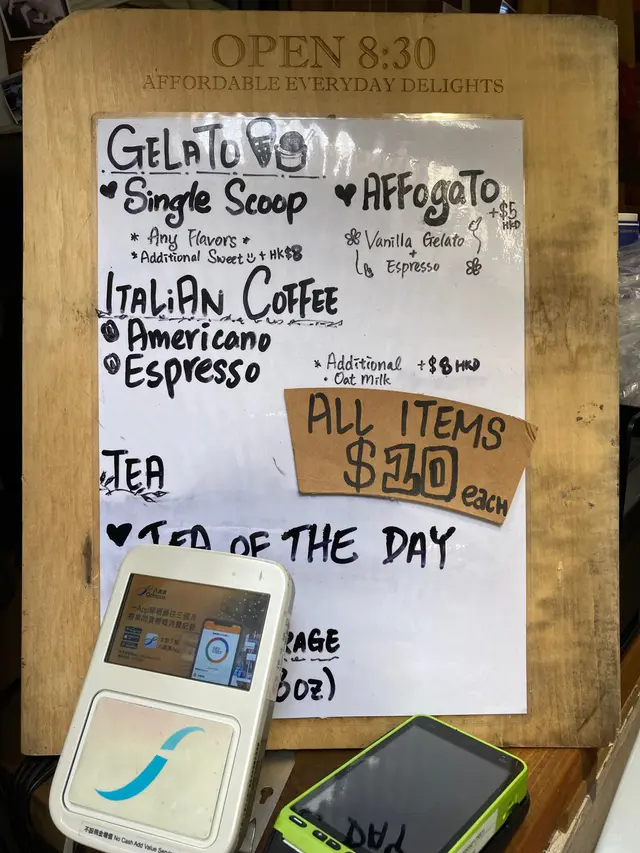 OPEN 8:30
AFFORDABLE EVERYDAY DELIGHTS
GELATO
Single Scoop
* Any Flavors *
* Additional Sweet + HK$8
AFFOGATO
+$5
HKD
Vanilla Gelato
+
Espresso
ITALIAN COFFEE
Americano
Espresso
* Additional +$8 HKD
• Oat Milk
ALL ITEMS
$10 each
TEA
TEA OF THE DAY
RAGE
oz)
不設現金增值 No Cash Add Value